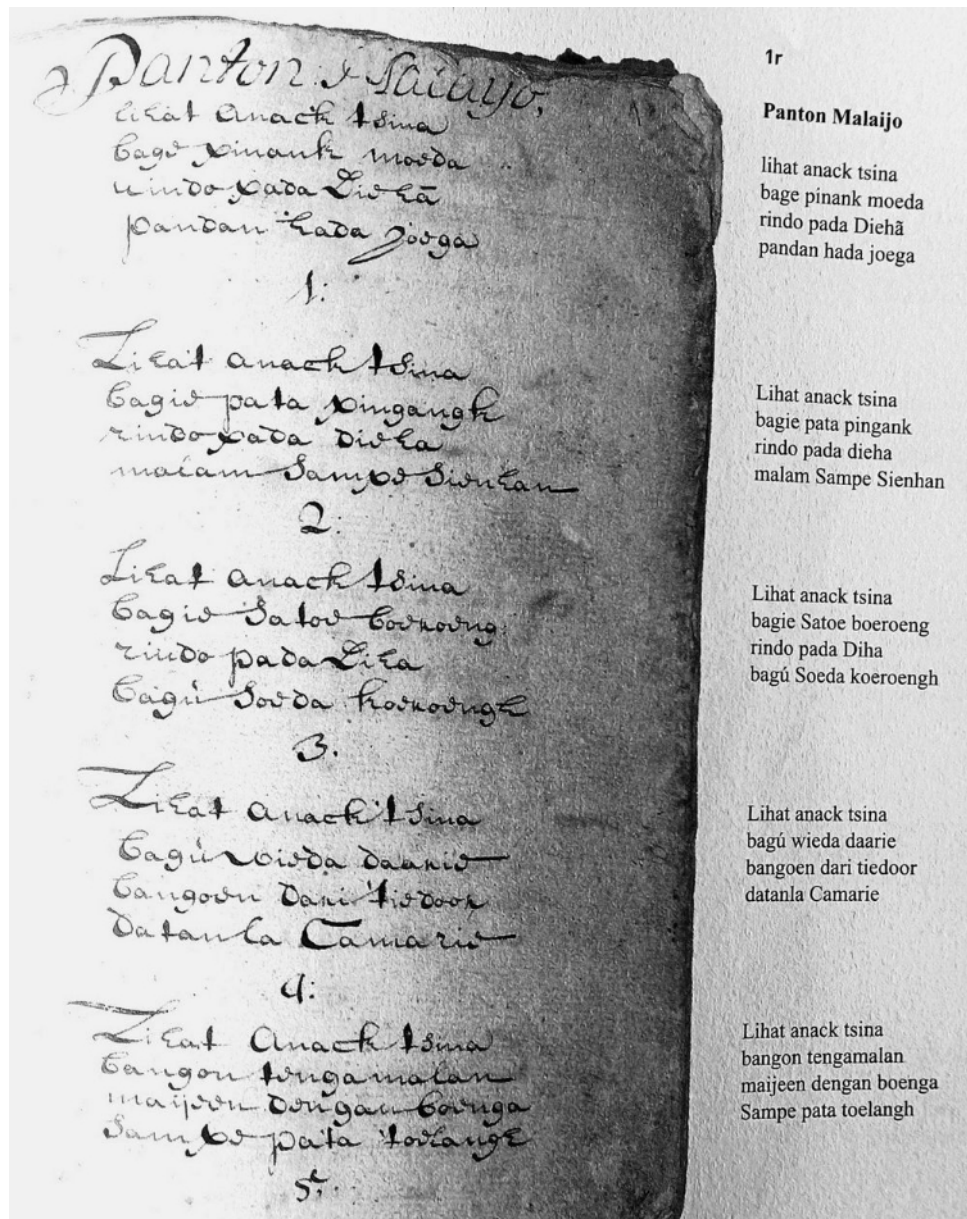 Panton Malayo,
lihat anack tsina
bage pinank moeda
rindo pada Diehã
pandan hada joega
1:
Lihat anack tsina
bagie pata pingangk
rindo pada dieha
malam Sampe Sienhan
2:
Lihat anack tsina
bagie Satoe boeroeng
rindo pada Diha
bagú Soeda koeroengh
3.
Lihat anack tsina
bagú wieda daarie
bangoen dari tiedoor
datanla Camarie
4:
Lihat Anack tsina
bangon tengamalan
maijeen dengan boenga
Sampe pata toelangh
5.
1r
Panton Malaijo
lihat anack tsina
bage pinank moeda
rindo pada Diehã
pandan hada joega
Lihat anack tsina
bagie pata pingank
rindo pada dieha
malam Sampe Sienhan
Lihat anack tsina
bagie Satoe boeroeng
rindo pada Diha
bagú Soeda koeroengh
Lihat anack tsina
bagú wieda daarie
bangoen dari tiedoor
datanla Camarie
Lihat anack tsina
bangon tengamalan
maijeen dengan boenga
Sampe pata toelangh